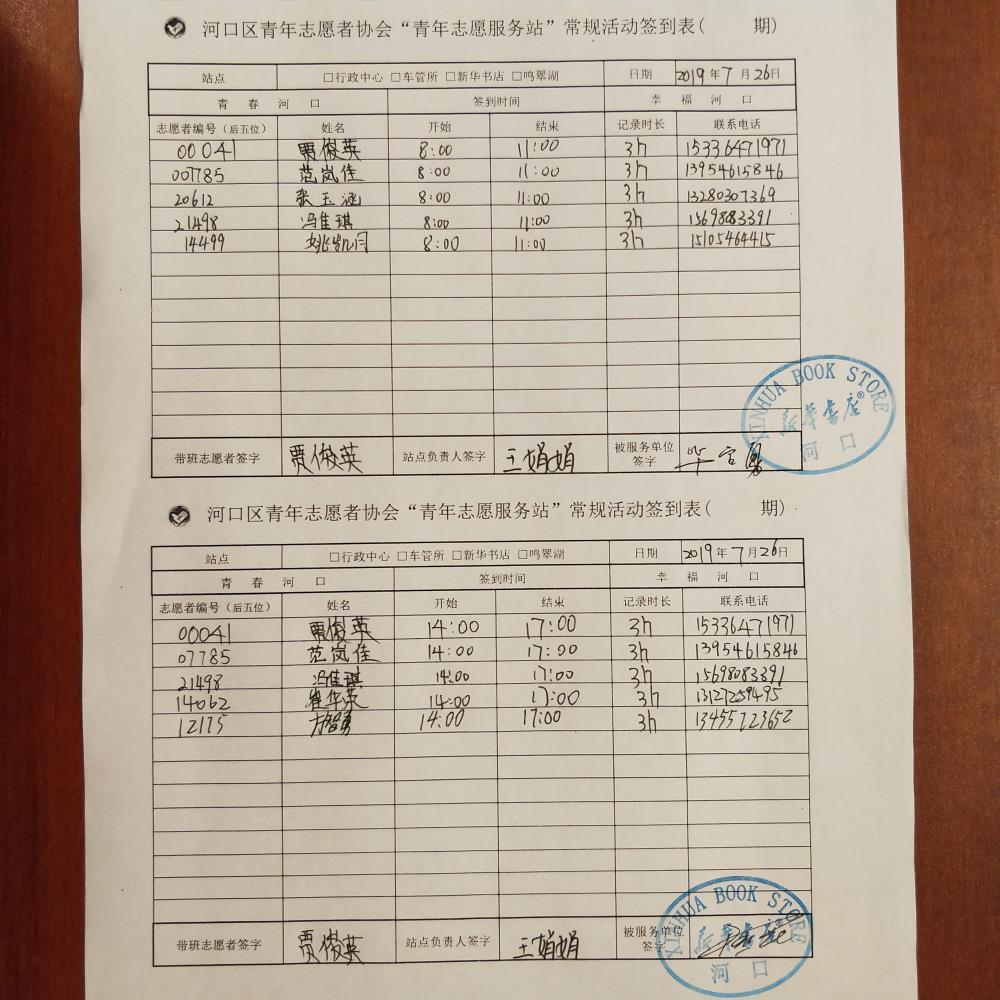 河口区青年志愿者协会“青年志愿服务站”常规活动签到表( 期)
站点 □行政中心 □车管所 □新华书店 □鸣翠湖 日期 2019年7月26日
青春河口 签到时间 幸福河口
志愿者编号（后五位） 姓名 开始 结束 记录时长 联系电话
00041 贾俊英 8:00 11:00 3h 15336471971
007785 范岚佳 8:00 11:00 3h 13954615846
20612 张玉涵 8:00 11:00 3h 13280307369
21498 冯佳琪 8:00 11:00 3h 15698083391
14499 8:00 11:00 3h 15105464415
XINHUA BOOK STORE
新华书店®
河口
带班志愿者签字 贾俊英 站点负责人签字 王娟娟 被服务单位签字
河口区青年志愿者协会“青年志愿服务站”常规活动签到表( 期)
站点 □行政中心 □车管所 □新华书店 □鸣翠湖 日期 2019年7月26日
青春河口 签到时间 幸福河口
志愿者编号（后五位） 姓名 开始 结束 记录时长 联系电话
00041 贾俊英 14:00 17:00 3h 15336471971
07785 范岚佳 14:00 17:00 3h 13954615846
21498 冯佳琪 14:00 17:00 3h 15698083391
14062 崔华英 14:00 17:00 3h 13127259495
12175 14:00 17:00 3h 13455723652
XINHUA BOOK STORE
新华书店
河口
带班志愿者签字 贾俊英 站点负责人签字 王娟娟 被服务单位签字